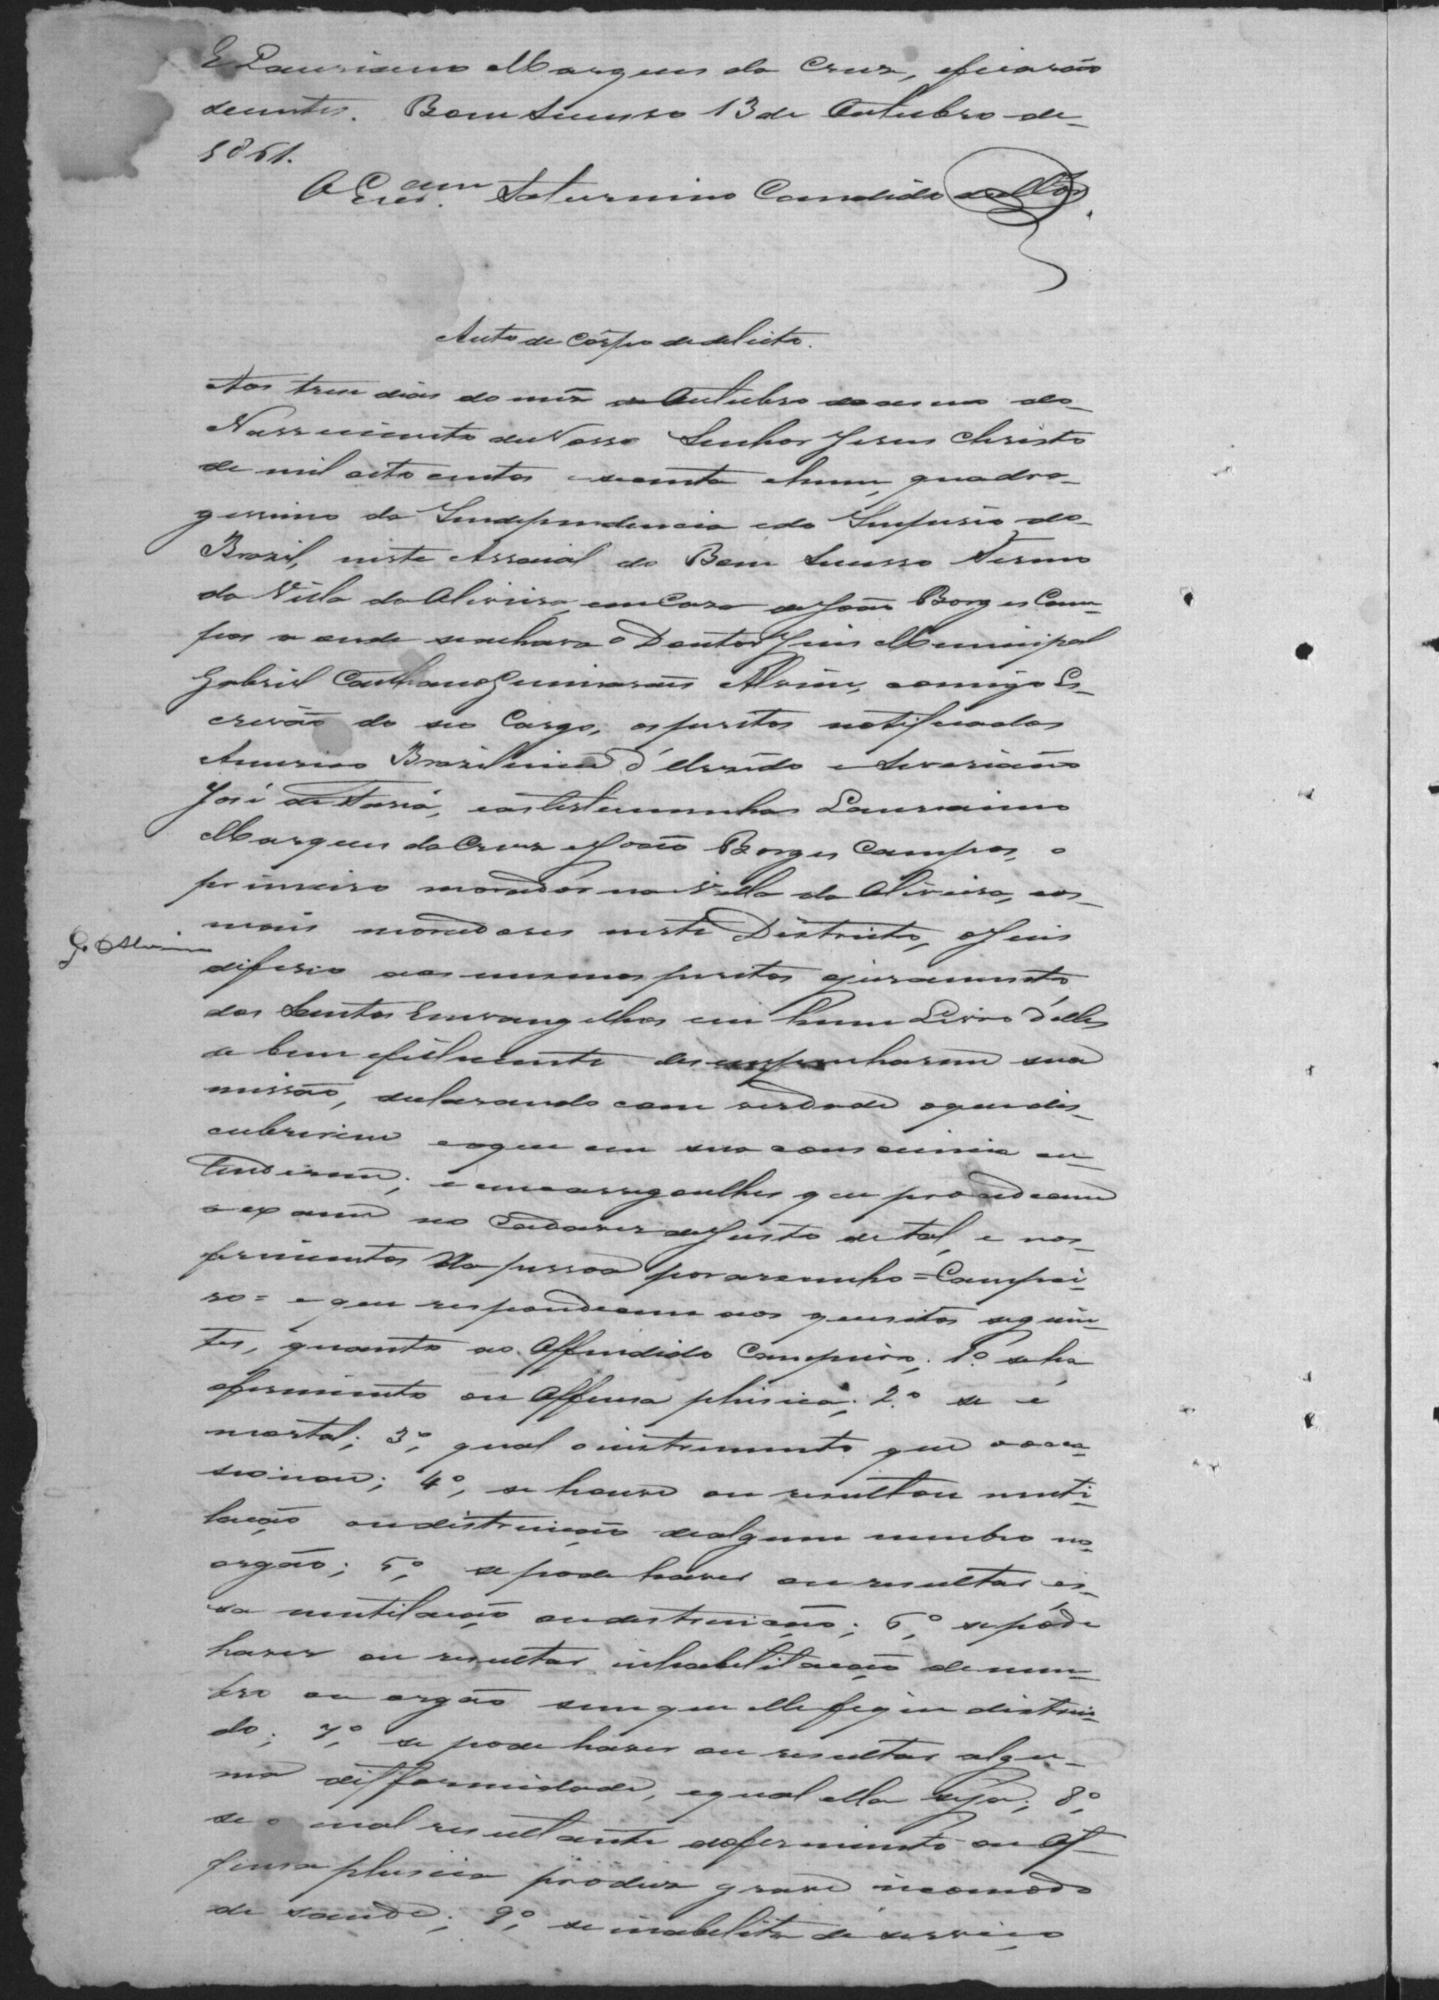 E Lauriano Marques da Cruz, eficarão
scientes. Bom Sucesso 13 de Outubro de
1861.
O Escr.am Saturnino Candido
Auto de Corpo de delicto.
Aos tres dias do mez de Outubro do anno do
Nascimento de Nosso Senhor Jesus Christo
de mil oito centos e secenta ehum, quadra-
gessimo da Independencia edo Imperio do
Brazil, neste Arraial do Bom Sucesso Termo
da Villa da Oliveira, em Caza de João Borges Cam-
pos a onde seachava o Doutor Juis Municipal
Gabriel Caethano Guimarães Alvim, comigo Es-
crivão do seo Cargo, os peritos notificados
Americo Braziliense d'
José de Faria, eas testemunhas Laurianno
Marques da Cruz e João Borges Campos, o
primeiro morador na Villa da Oliveira, eos
mais moradores neste Districto, o Juis
G. Alvim
diferio aos mesmos peritos ojuramento
dos Santos Envangelhos em hum Livro d'elles
de bem efielmente desempenharem sua
missão, declarando com verdade oque dis-
cubrirem eoque em sua consciencia en-
tenderem; e encarregoulhes que procedecem
a exame no Cadaver de Justo de tal, e nos
ferimentos da pessoa por arcunho = Campei-
ro = e que respondecem aos quesitos seguin-
tes, quanto ao Offendido Campeiro; 1.º se ha
ferimento ou Offensa phisica; 2.º se é
mortal; 3.º, qual o instrumento que o occa-
sionou; 4.º, se houve ou resultou muti-
lação oudistruição dealgum membro ou
orgão; 5.º, se pode haver ou resultar es-
sa mutilação oudestruição; 6.º, se póde
haver ou resultar inhabilitação de mem-
bro ou orgão sem que elle fique distrui-
do; 7.º, se pode haver ou resultar algu-
ma difformidade, equal ella seja; 8.º,
se o mal resultante doferimento ou Of-
fensa phisica prodúz grave incomodo
de saude; 9.º, se inabilita de serviço